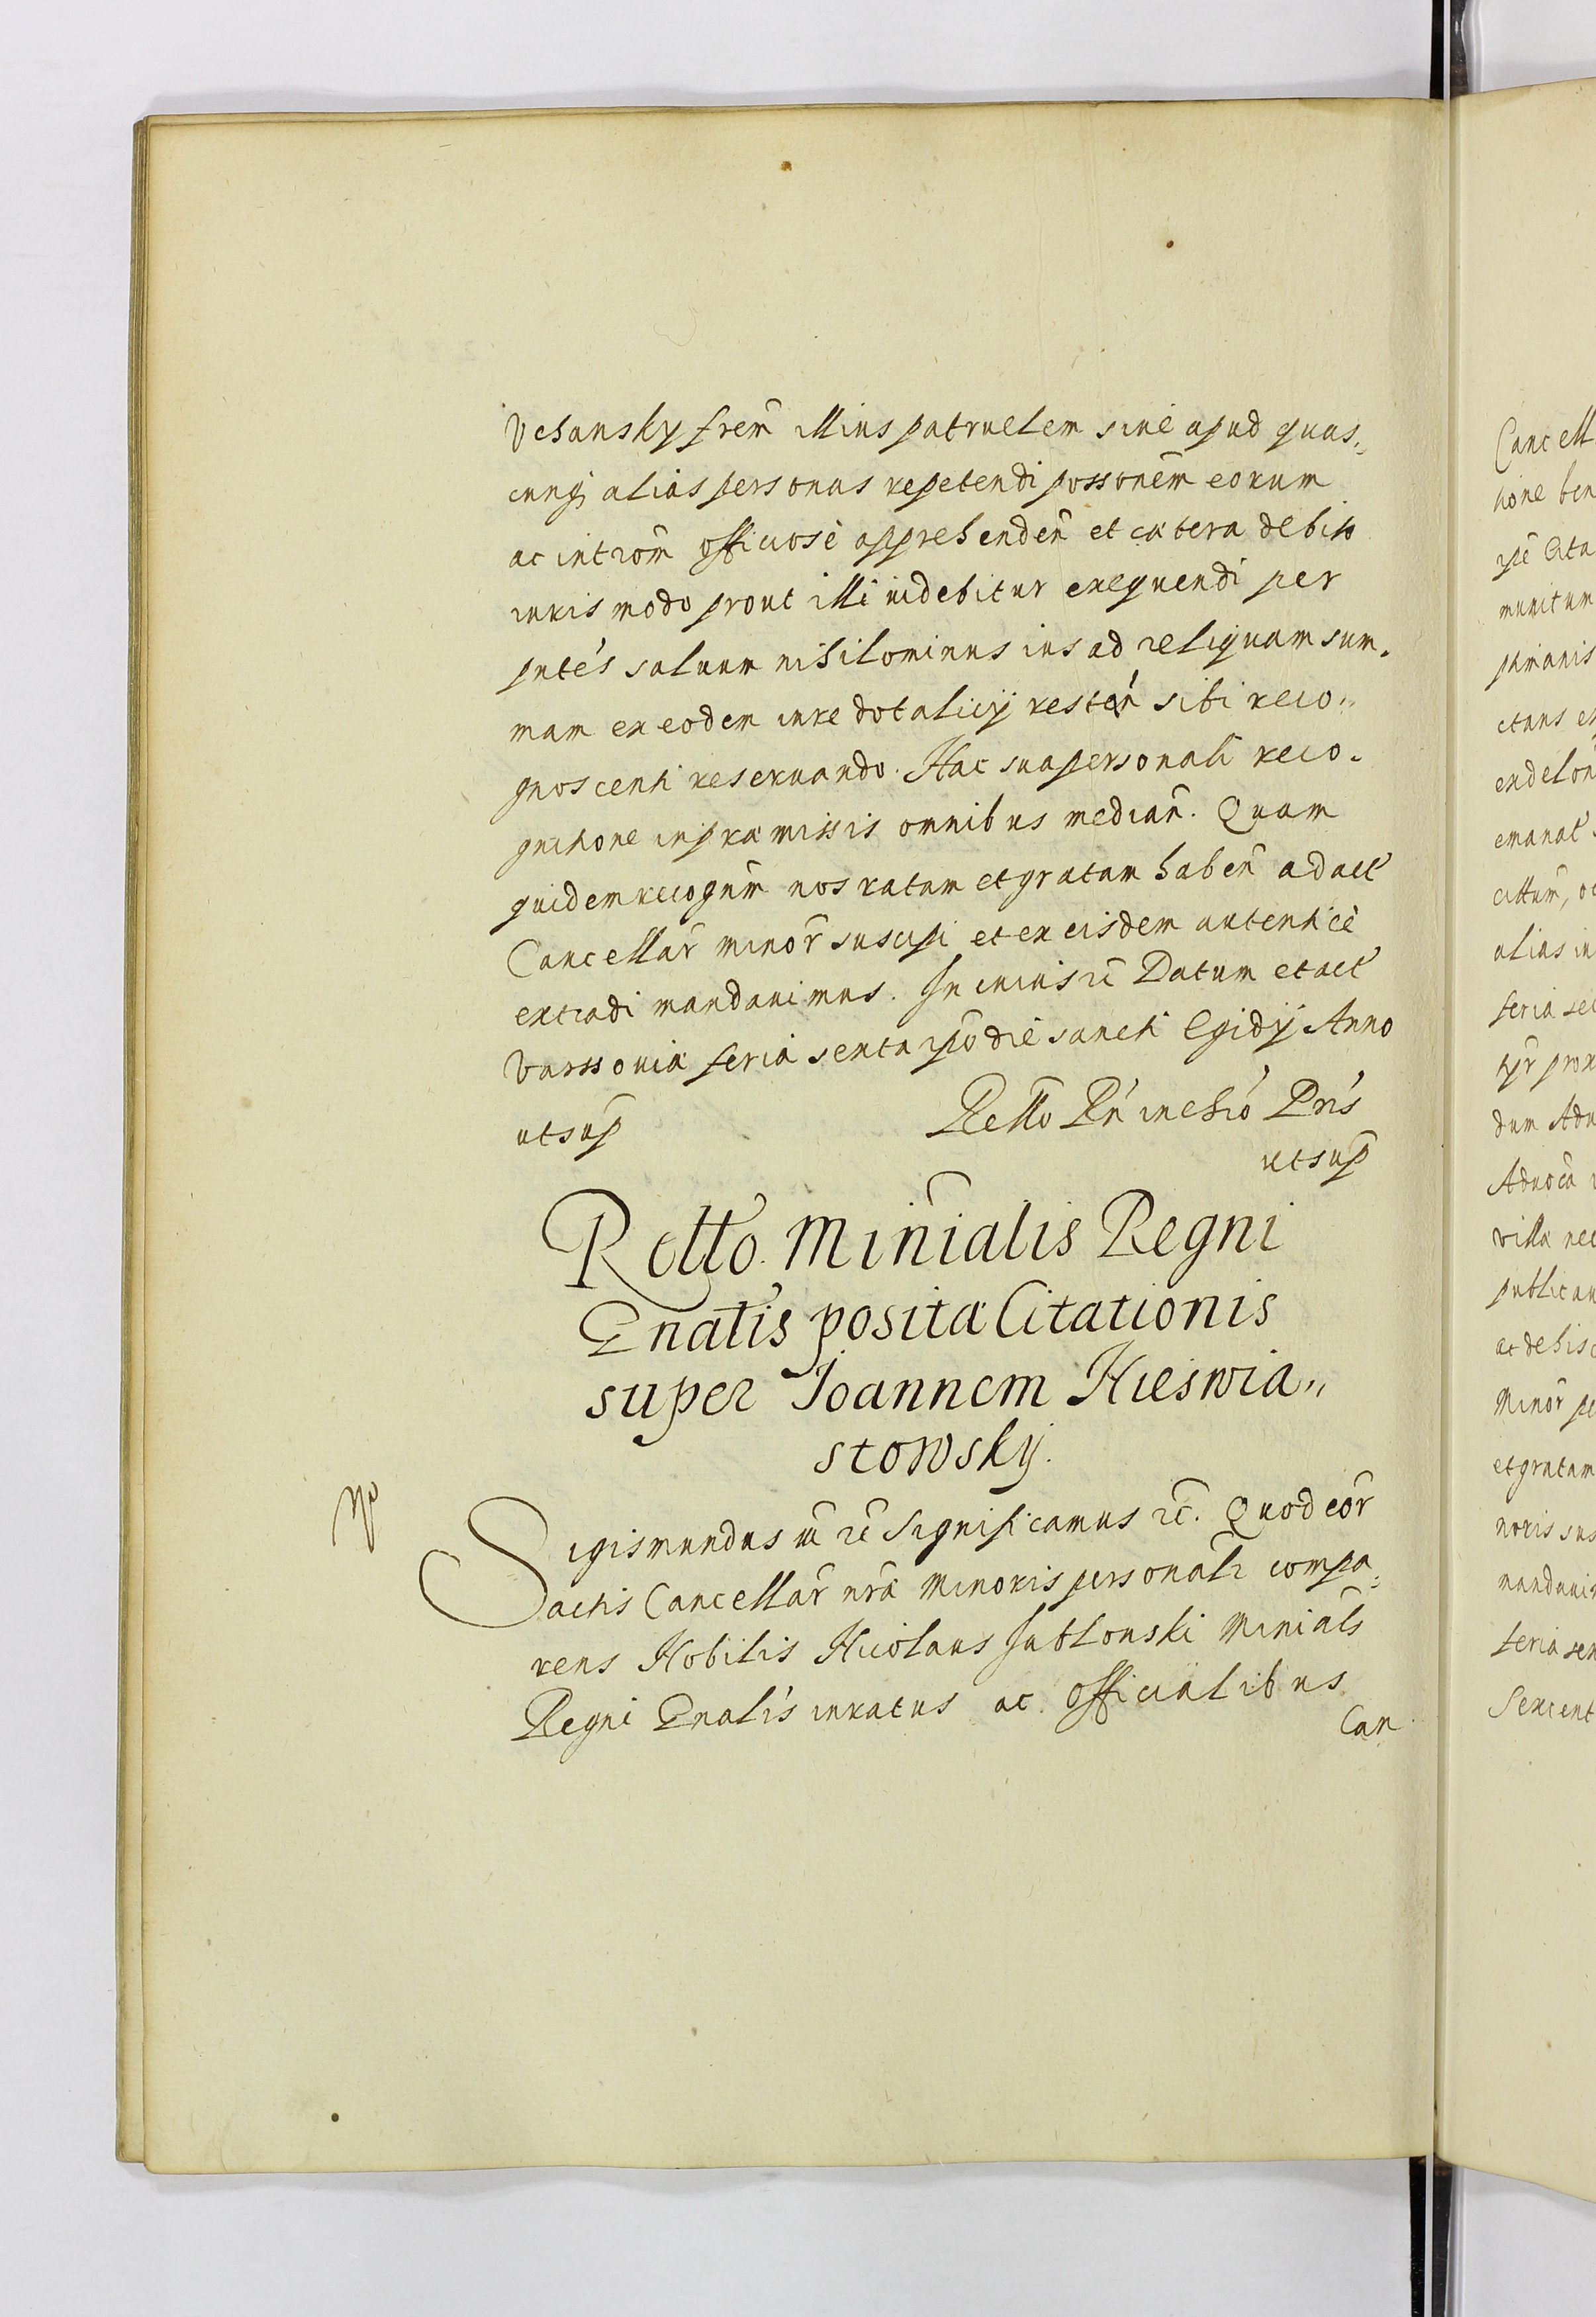 Vchansky frem̃ illius patruelem siuè apud quas„
cunq; alias personas repetendi possonem̃ eorum
ac introm̃ officiosè apprehenden̄ et cætera debito
iuris modo prout illi uidebitur exequendi per
pntés saluum nihilominus ius ad reliquam sum„
mam ex eodem iure dotalicÿ resteń sibi reco„
gnoscenti reseruando. Hac sua personali reco„
gnitione in præmissis omnibus median̄. Quam
quidem recognm̃ nos ratam et gratam haben̄ ad act
Cancellar̄ minor̄ suscipi et ex eisdem autenticè
extradi mandauimus. In cuius rē Datum et act
Varssouiæ feria sexta ipō diè sancti Egidÿ Anno
utsup̄
Retto Rń in ehió Prís
utsup̄
Rotto. Min̄ialis Regni
Gnalis positæ Citationis
super Joannem Nieswia„
stowskÿ.
Sigismundus iii rē Significamus rē. Quod cor̄
actis Cancellar̄ nr̄æ Minoris personali compa„
rens Nobilis Nicolaus Jablonski Minials
Regni Gnalis iuratus ac officialibus
Can
Cancell
munitum
emanat
alias in
feria se
dum Adu
publicau
et gratam
noris sus
mandaui
feria sex